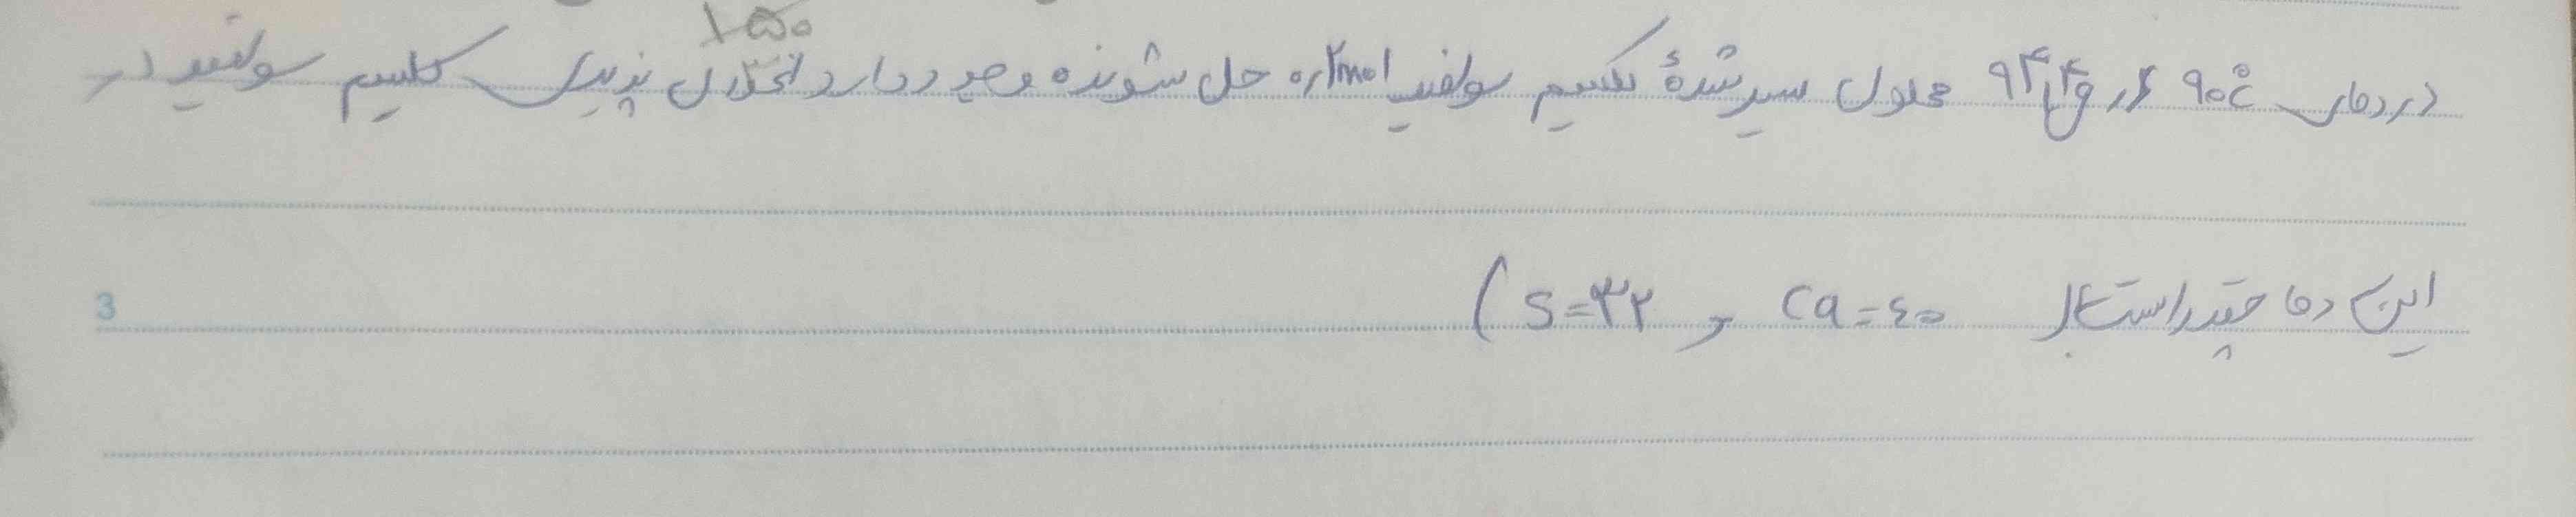 ۱۵۰
در دمای ۹۰°C در ۹۴٫۴g محلول سیر شدهٔ کلسیم سولفید ۰٫۲mol حل شونده وجود دارد انحلال پذیری کلسیم سولفید در
این دما چقدر است؟ Ca = ۴۰ و S = ۳۲ )
3